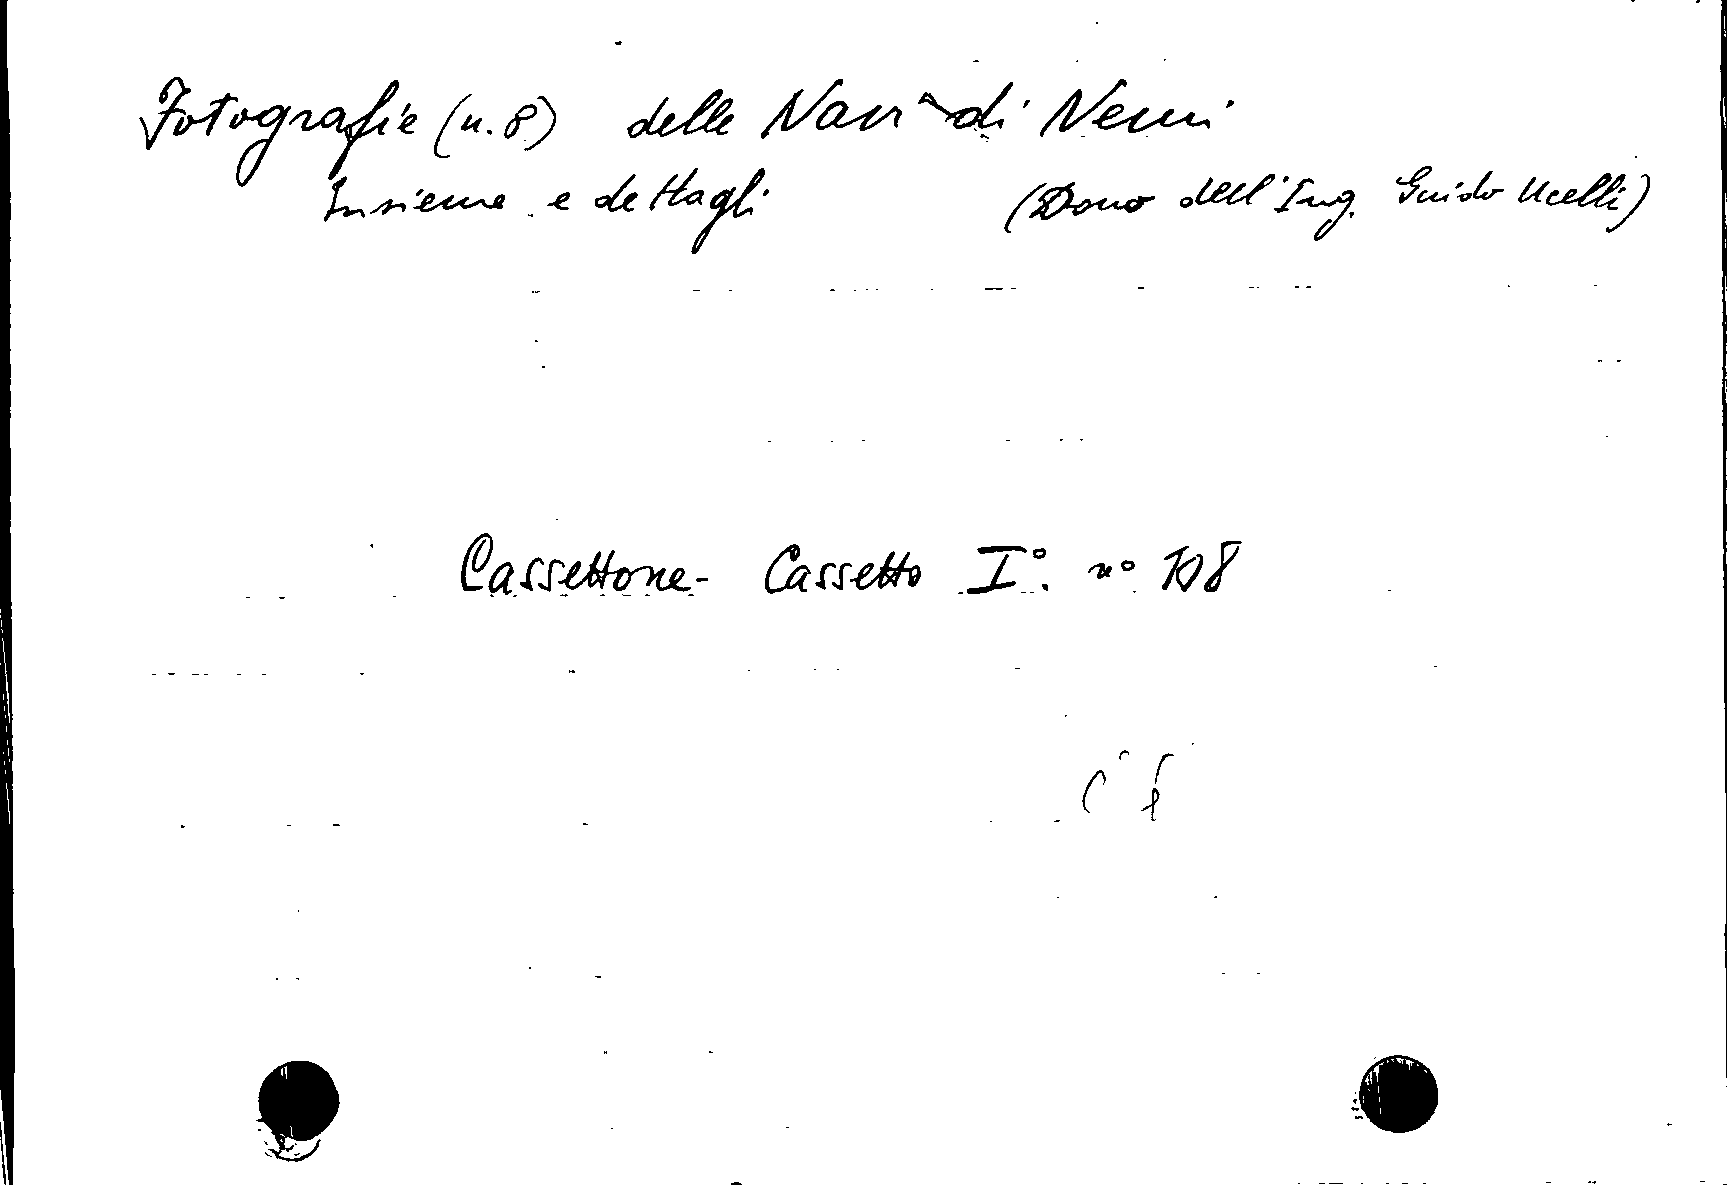 Fotografie (n. 8) delle Navi di Nemi
Insieme e dettagli (Dono dell'Ing. Guido Ucelli)
Cassettone - Cassetto I°. n° 108